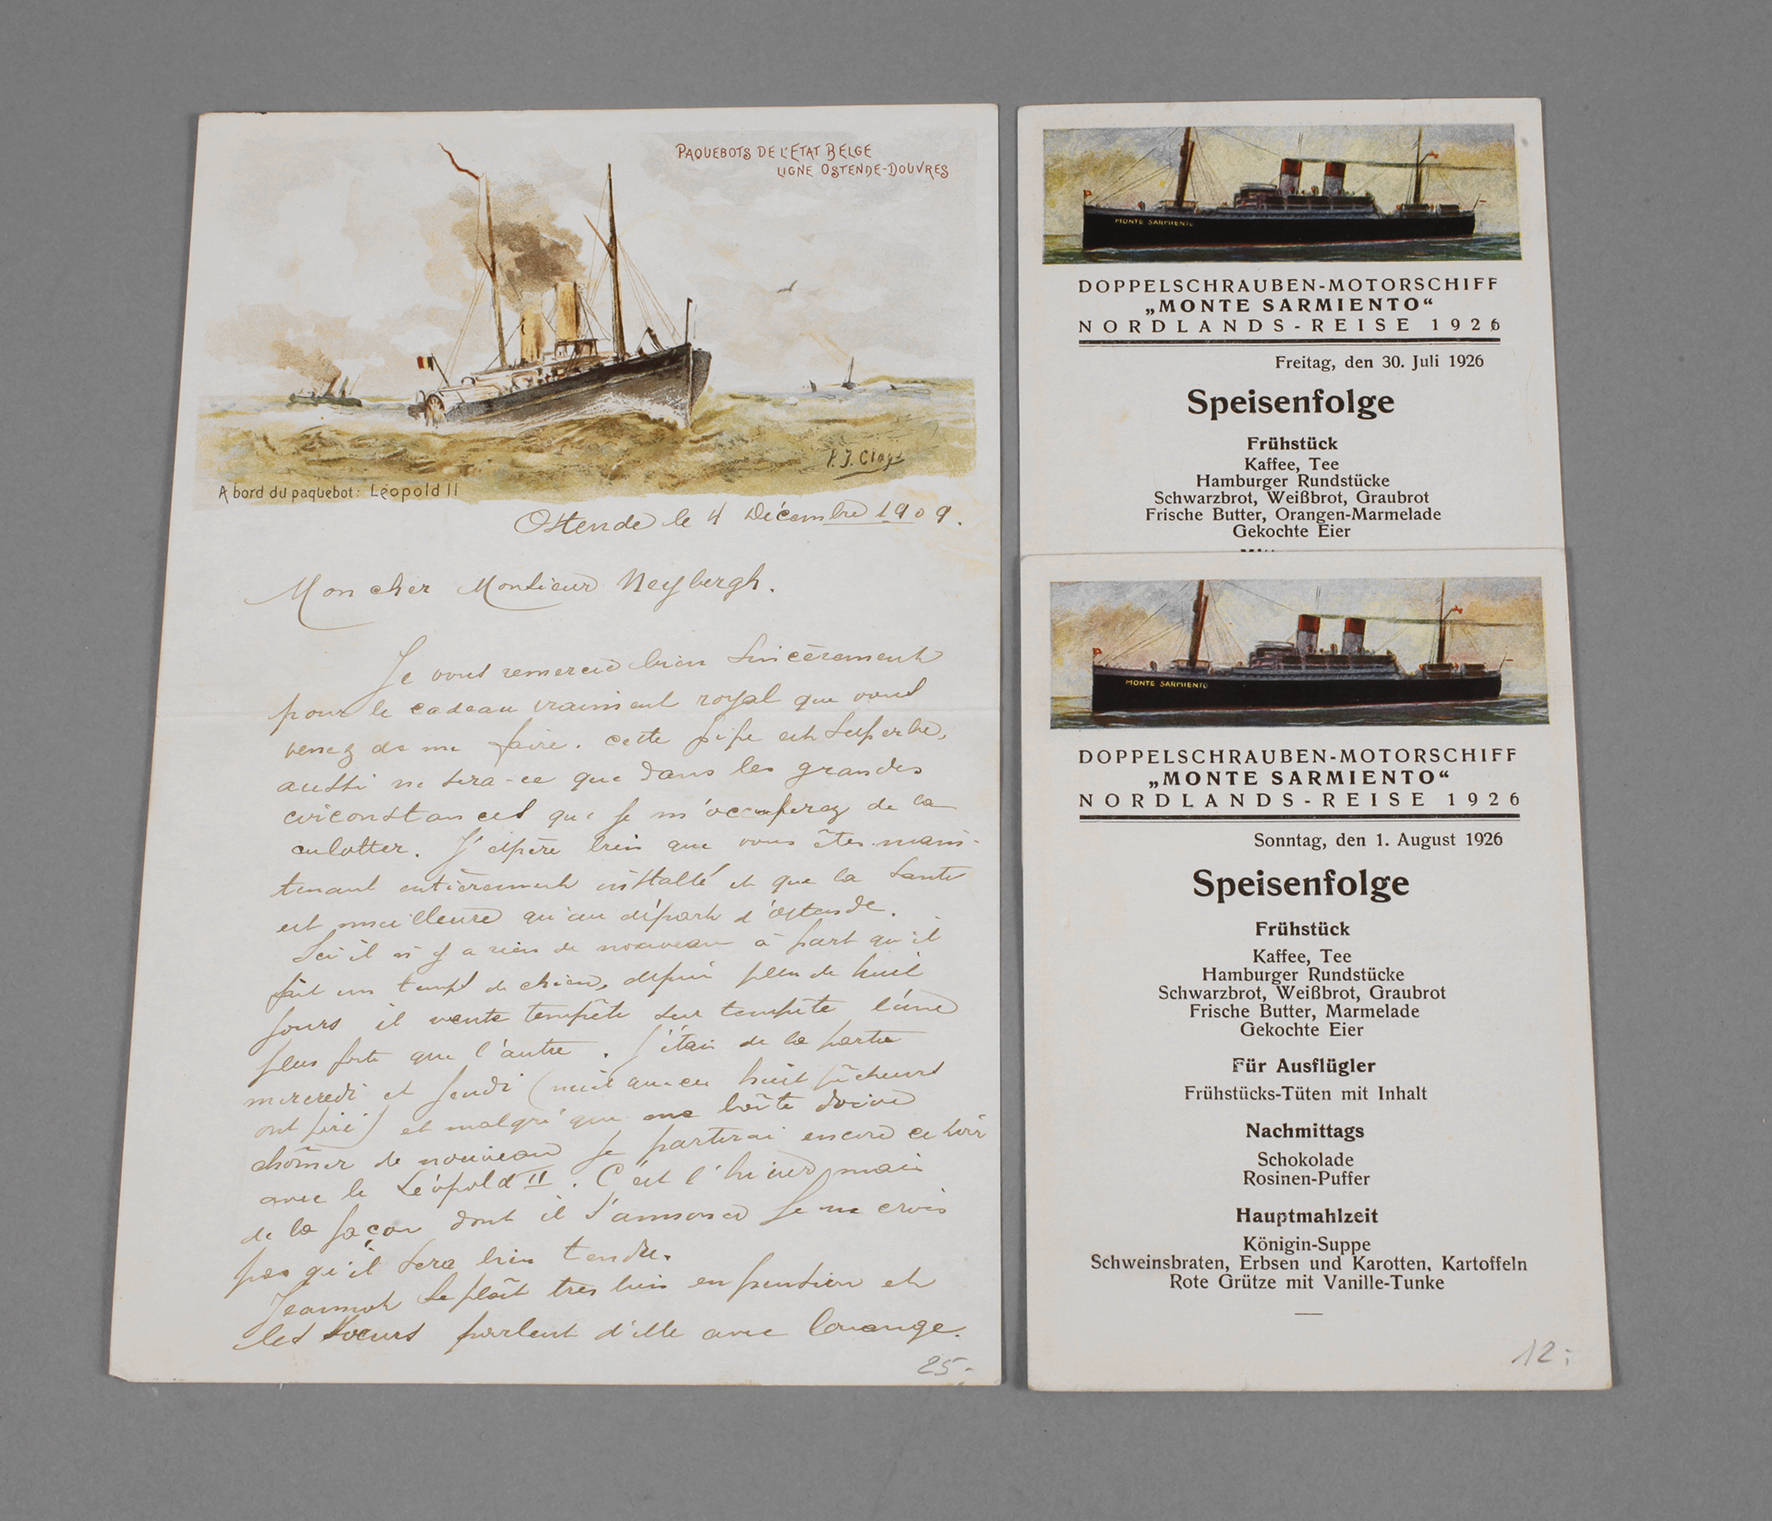 PAQUEBOTS DE L'ETAT BELGE
LIGNE OSTENDE-DOUVRES
P. J. Clays
A bord du paquebot: Léopold II
Ostende le 4 Décembre 1909.
Mon cher Monsieur Neybergh.
Je vous remercie bien sincèrement
pour le cadeau vraiment royal que vous
venez de me faire. cette pipe est superbe,
aussi ne sera-ce que dans les grandes
circonstances que je m'occuperez de la
culotter. J'espère bien que vous êtes main-
tenant entièrement installé et que la santé
est meilleure qu'au départ d'Ostende.
Ici il n'y a rien de nouveau à part qu'il
fait un temps de chien, depuis plus de huit
jours il vente tempête sur tempête l'une
plus forte que l'autre. J'étais de la partie
mercredi et jeudi (nuit huit pêcheurs
ont péri) et malgré que ma boîte doive
chômer de nouveau je partirai encore ce soir
avec le Léopold II. C'est l'hiver, mais
de la façon dont il s'annonce je ne crois
pas qu'il sera bien tendre.
Jeannot se plaît très bien en pension et
les soeurs parlent d'elle avec louange.
25,-
MONTE SARMIENTO
DOPPELSCHRAUBEN-MOTORSCHIFF
„MONTE SARMIENTO“
NORDLANDS-REISE 1926
Freitag, den 30. Juli 1926
Speisenfolge
Frühstück
Kaffee, Tee
Hamburger Rundstücke
Schwarzbrot, Weißbrot, Graubrot
Frische Butter, Orangen-Marmelade
Gekochte Eier
MONTE SARMIENTO
DOPPELSCHRAUBEN-MOTORSCHIFF
„MONTE SARMIENTO“
NORDLANDS-REISE 1926
Sonntag, den 1. August 1926
Speisenfolge
Frühstück
Kaffee, Tee
Hamburger Rundstücke
Schwarzbrot, Weißbrot, Graubrot
Frische Butter, Marmelade
Gekochte Eier
Für Ausflügler
Frühstücks-Tüten mit Inhalt
Nachmittags
Schokolade
Rosinen-Puffer
Hauptmahlzeit
Königin-Suppe
Schweinsbraten, Erbsen und Karotten, Kartoffeln
Rote Grütze mit Vanille-Tunke
12,-